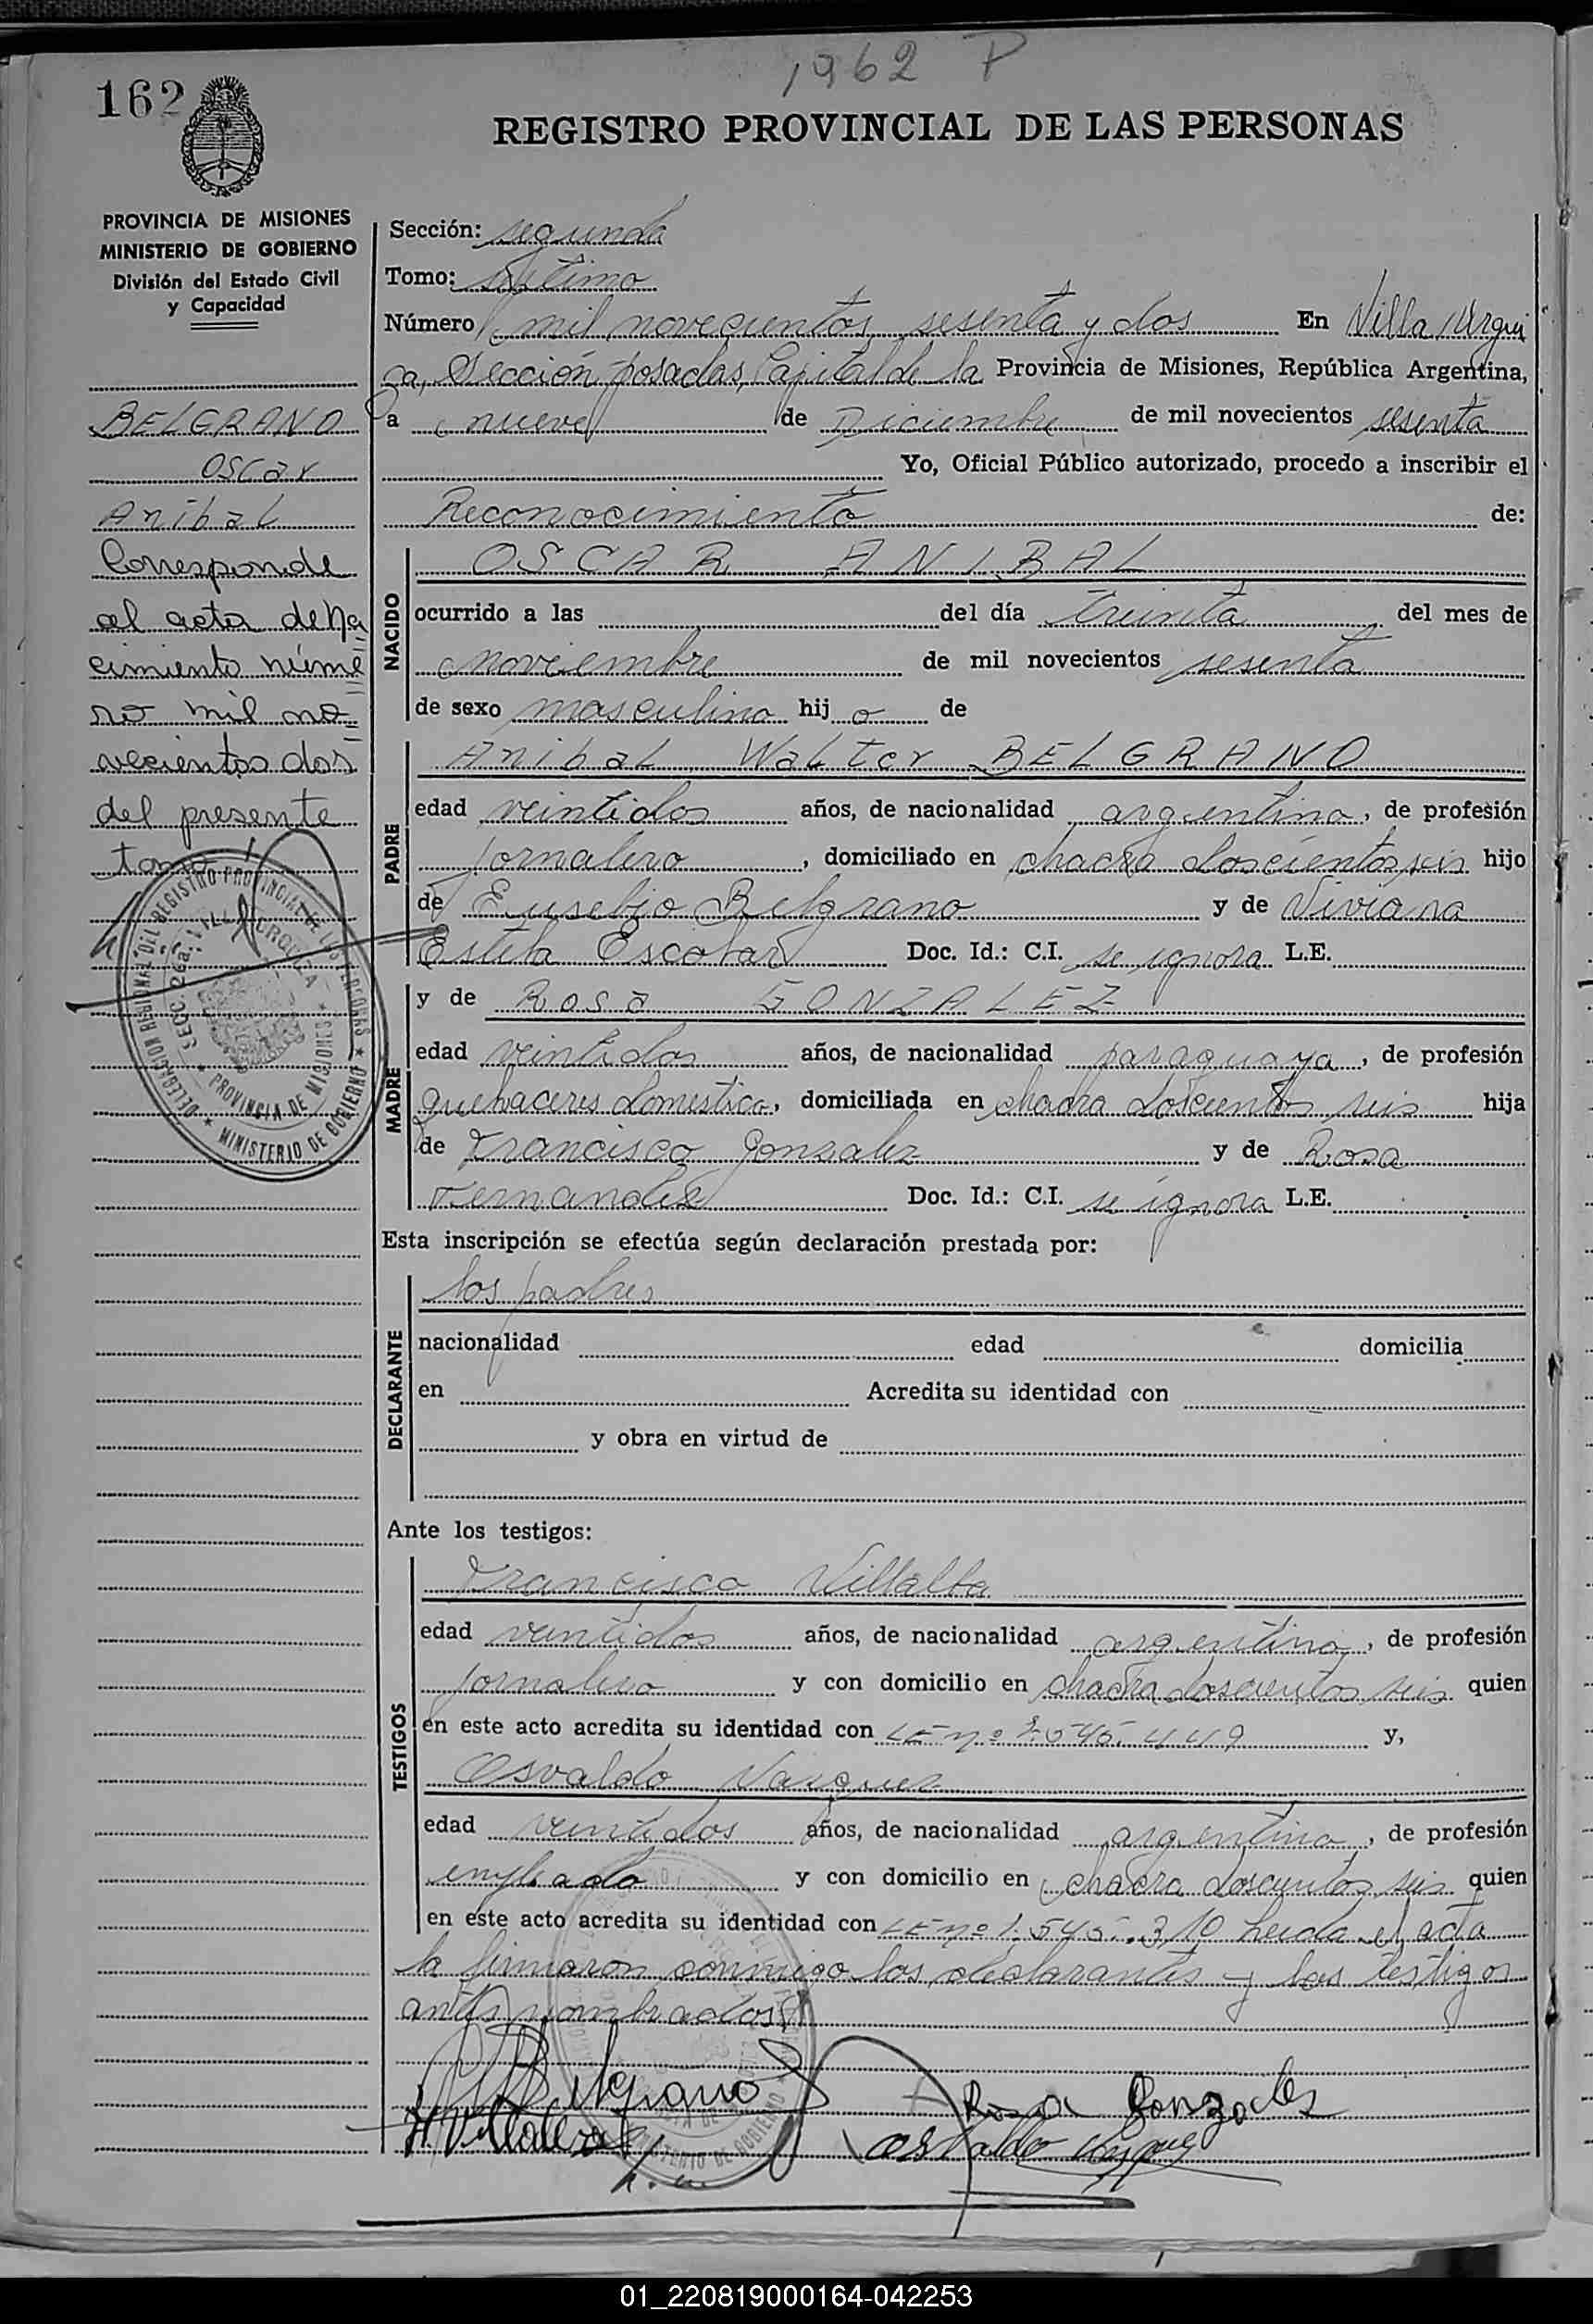 1962 P
162
REGISTRO PROVINCIAL DE LAS PERSONAS
PROVINCIA DE MISIONES
MINISTERIO DE GOBIERNO
División del Estado Civil
y Capacidad
BELGRANO
Oscar
Anibal
Corresponde
al acta de Na
cimiento núme
ro mil no
vecientos dos
del presente
tomo
DELEGACION REGIONAL DEL REGISTRO PROVINCIAL DE LAS PERSONAS
MINISTERIO DE GOBIERNO
SECC. 2da. VILLA URQUIZA
PROVINCIA DE MISIONES
Sección: segunda
Tomo: septimo
Número mil novecientos sesenta y dos En Villa Urqui
za, Sección posadas, Capital de la Provincia de Misiones, República Argentina,
a nueve de Diciembre de mil novecientos sesenta
Yo, Oficial Público autorizado, procedo a inscribir el
Reconocimiento de:
NACIDO
OSCAR ANIBAL
ocurrido a las del día treinta del mes de
noviembre de mil novecientos sesenta
de sexo masculino hijo de
PADRE
Anibal Walter BELGRANO
edad veintidos años, de nacionalidad argentina, de profesión
jornalero, domiciliado en chacra doscientos seis hijo
de Eusebio Belgrano y de Viviana
Estela Escobar Doc. Id.: C.I. se ignora L.E.
MADRE
y de Rosa GONZALEZ
edad veintidos años, de nacionalidad paraguaya, de profesión
quehaceres domestico, domiciliada en chacra doscientos seis hija
de Francisco Gonzalez y de Rosa
Fernandez Doc. Id.: C.I. se ignora L.E.
Esta inscripción se efectúa según declaración prestada por:
DECLARANTE
los padres
nacionalidad edad domicilia
en Acredita su identidad con
y obra en virtud de
Ante los testigos:
TESTIGOS
Francisco Villalba
edad veintidos años, de nacionalidad argentina, de profesión
jornalero y con domicilio en chacra doscientos seis quien
en este acto acredita su identidad con LE nº 449 y,
Osvaldo Vazquez
edad veintidos años, de nacionalidad argentina, de profesión
empleado y con domicilio en chacra doscientos seis quien
en este acto acredita su identidad con LE nº 1.545.310 Leida el acta
la firmaron conmigo los declarantes y los testigos
antes nombrados
Belgrano
Rosa Gonzales
F Villalba
Osvaldo Vazquez
01_220819000164-042253